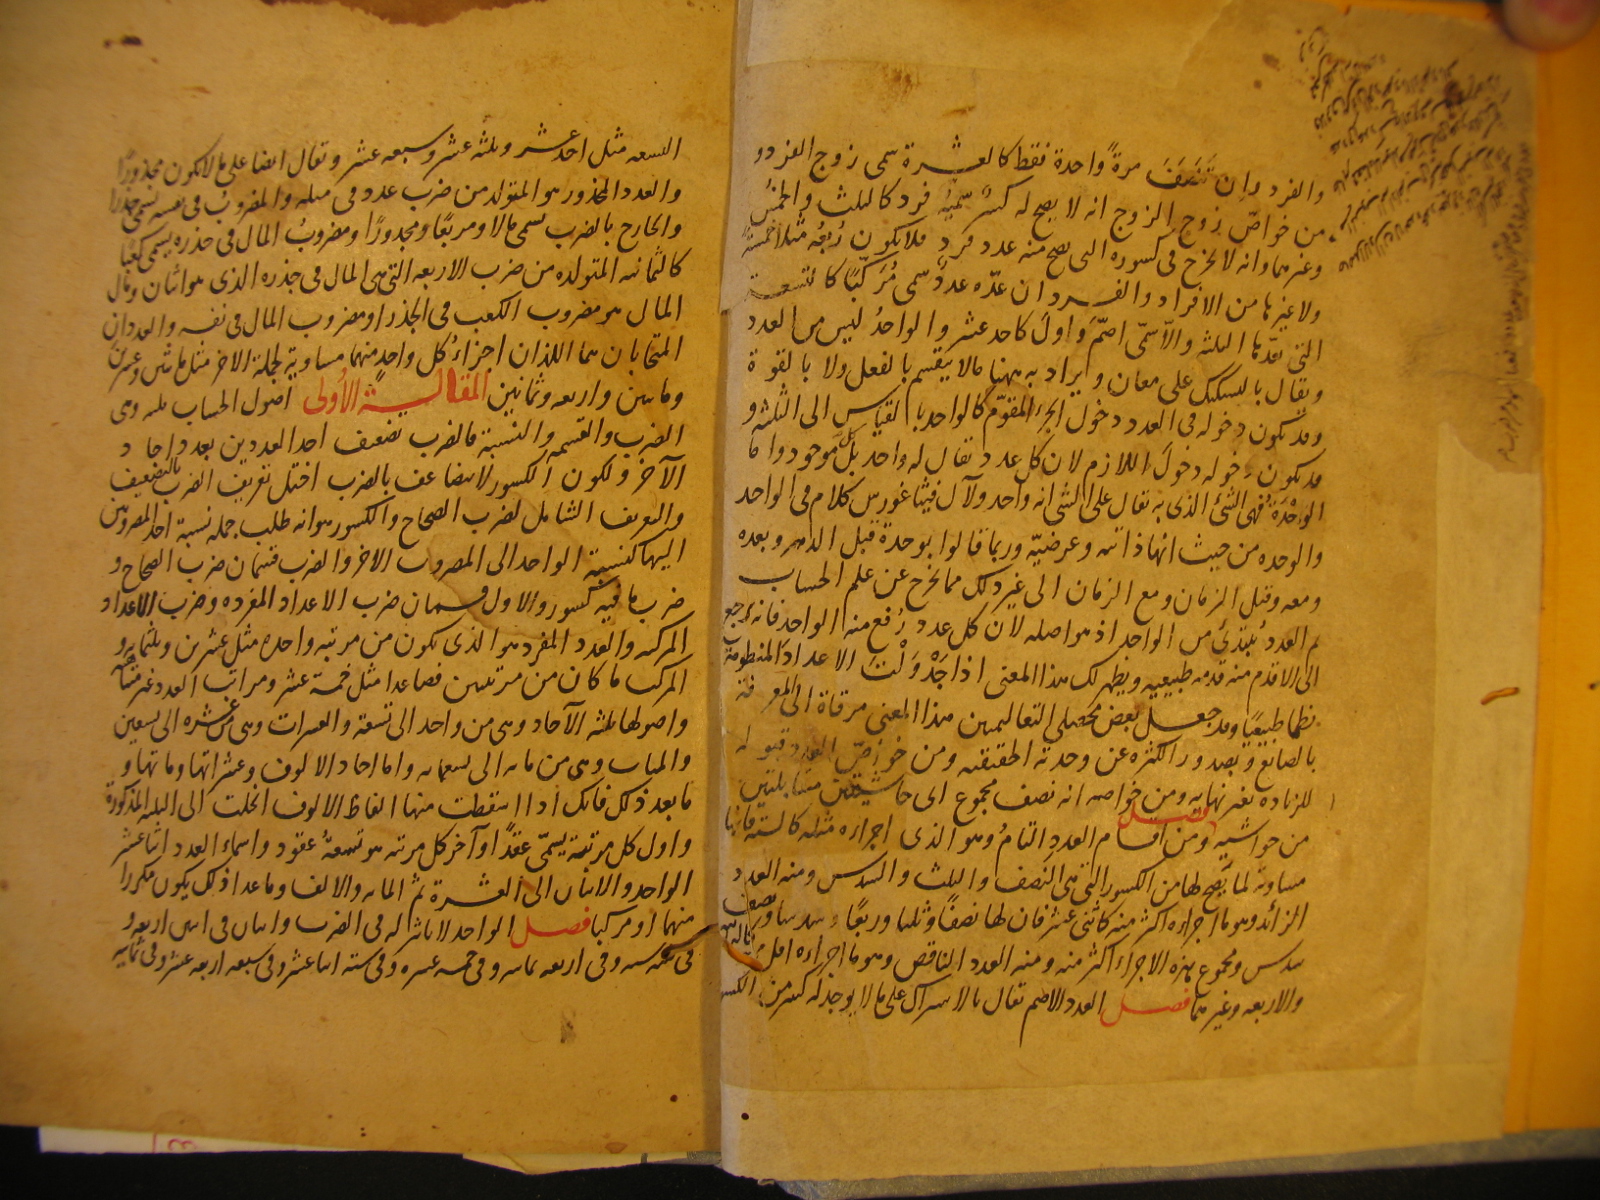 والفرد وان تَنَصَّفَ مرةً واحدة فقط كالعشرة سمى زوج الفرد و
من خواصّ زوج الزوج انه لا يصح له كسرٌ سَمِيُّه فرد كالثلث والخمس
وغيرهما وانه لا يخرج فى كسوره التى تصح منه عدد فرد فلا يكون رُبعُه مثلا خمسةً
ولا غيرها من الافراد والفرد ان عدّه عددٌ سمى مُرَكّبًا كالتسعة
التى تعدّها الثلثة والّا سمّى اصمّ واولَ كاحد عشر والواحدُ ليس من العدد
ويقال بالتشكيك على معان ويراد به ههنا ما لا ينقسم بالفعل ولا بالقوة
وقد يكون دخوله فى العدد دخول الجزء المقوّم كالواحد بالقياس الى الثلثة و
قد يكون دخوله دخولَ اللازم لان كل عدد يقال له واحد بل كلّ موجود واما
الوَحْدَة فهى الشئ الذى به يقال على الشئ انه واحد ولآل فيثاغورس كلام فى الواحد
والوحده من حيث انها ذاتيه وعرضيّة وربما قالوا بوحدة قبل الدهر وبعده
ومعه وقبل الزمان ومع الزمان الى غير ذلك مما يخرج عن علم الحساب
ثم العددُ يبتدئ من الواحد اذ هو اصله لان كل عدد رُفع منه الواحد فانه يرجع
الى الاقدم منه قدمه طبيعيه ويظهر لك هذا المعنى اذا جَدْوَلْتَ الاعدادَ المنظومة
نظما طبيعيًا وقد جعل بعض محصلى التعاليميين هذا المعنى مرقاة الى المعرفة
بالصانع وبصدور الكثره عن وحدته الحقيقيه ومن خواصّ العدد قبوله
للزياده بغير نهايه ومن خواصه انه نصف مجموع اى حاشيتين متقابلتين
من حواشيه فصل ومن اقسام العدد التامُ وهو الذى اجزاؤه مثله كالستة فانها
مساوية لما يصح لها من الكسور التى هى النصف والثلث والسدس ومنه العدد
الزائد وهو ما اجزاؤه اكثر منه كاثنى عشر فان لها نصفًا وثلثا وربعًا وسدسا ونصف
سدس ومجموع هذه الاجزاء اكثر منه ومنه العدد الناقص وهو ما اجزاؤه اقل منه
والاربعه وغيرهما فصل العدد الاصم يقال بالاشتراك على ما لا يوجد له كسر من الكسور
التسعه مثل احد عشر وثلثه عشر وسبعه عشر ويقال ايضا على ما لا يكون مجذورًا
والعدد المجذور هو المتولد من ضرب عدد فى مثله والمضروب فى نفسه يسمى جذرًا
والخارج بالضرب يسمى مالا ومربعًا ومجذورًا ومضروبُ المال فى جذره يسمى كعبًا
كالثمانيه المتولده من ضرب الاربعه التى هى المال فى جذره الذى هو اثنان ومال
المال هو مضروب الكعب فى الجذر او مضروب المال فى نفسه والعددان
المتحابان هما اللذان اجزاءُ كل واحدٍ منهما مساوية لجملة الاخر مثل مائتين وعشرين
ومائتين واربعه وثمانين المقالة الأولى اصول الحساب ثلثه وهى
الضرب والقسمه والنسبة فالضرب تضعيف احد العددين بعدد احاد
الآخر ولكون الكسور لا تتضاعف بالضرب اختل تعريف الضرب بالتضعيف
والتعريف الشامل لضرب الصحاح والكسور هو انه طلب جمله نسبة احد المضروبين
اليها كنسبة الواحد الى المضروب الاخر والضرب قسمان ضرب الصحاح و
ضرب ما فيه كسور والاول قسمان ضرب الاعداد المفرده وضرب الاعداد
المركبه والعدد المفرد هو الذى يكون من مرتبه واحده مثل عشرين وثلثمايه و
المركب ما كان من مرتبتين فصاعدا مثل خمسة عشر ومراتب العدد غير متناهيه
واصولها ثلثه الآحاد وهى من واحد الى تسعة والعشرات وهى من عشره الى تسعين
والمئات وهى من مائه الى تسعمائه واما احاد الالوف وعشراتها ومائتها و
ما بعد ذلك فانك اذا اسقطت منها الفاظ الالوف انحلت الى الثلثه المذكورة
واول كل مرتبة يسمّى عقدًا او آخر كل مرتبه هو تسعةُ عقود واسماء العدد اثنا عشر
الواحد والاثنان الى العشرة ثم المائه والالف وما عدا ذلك يكون مكررا
منهما او مركبا فصل الواحد لا تاثير له فى الضرب واثنان فى اثنين اربعه و
فى ثلثه سته وفى اربعه ثمانيه وفى خمسه عشره وفى سته اثنا عشر وفى سبعه اربعه عشر وفى ثمانيه